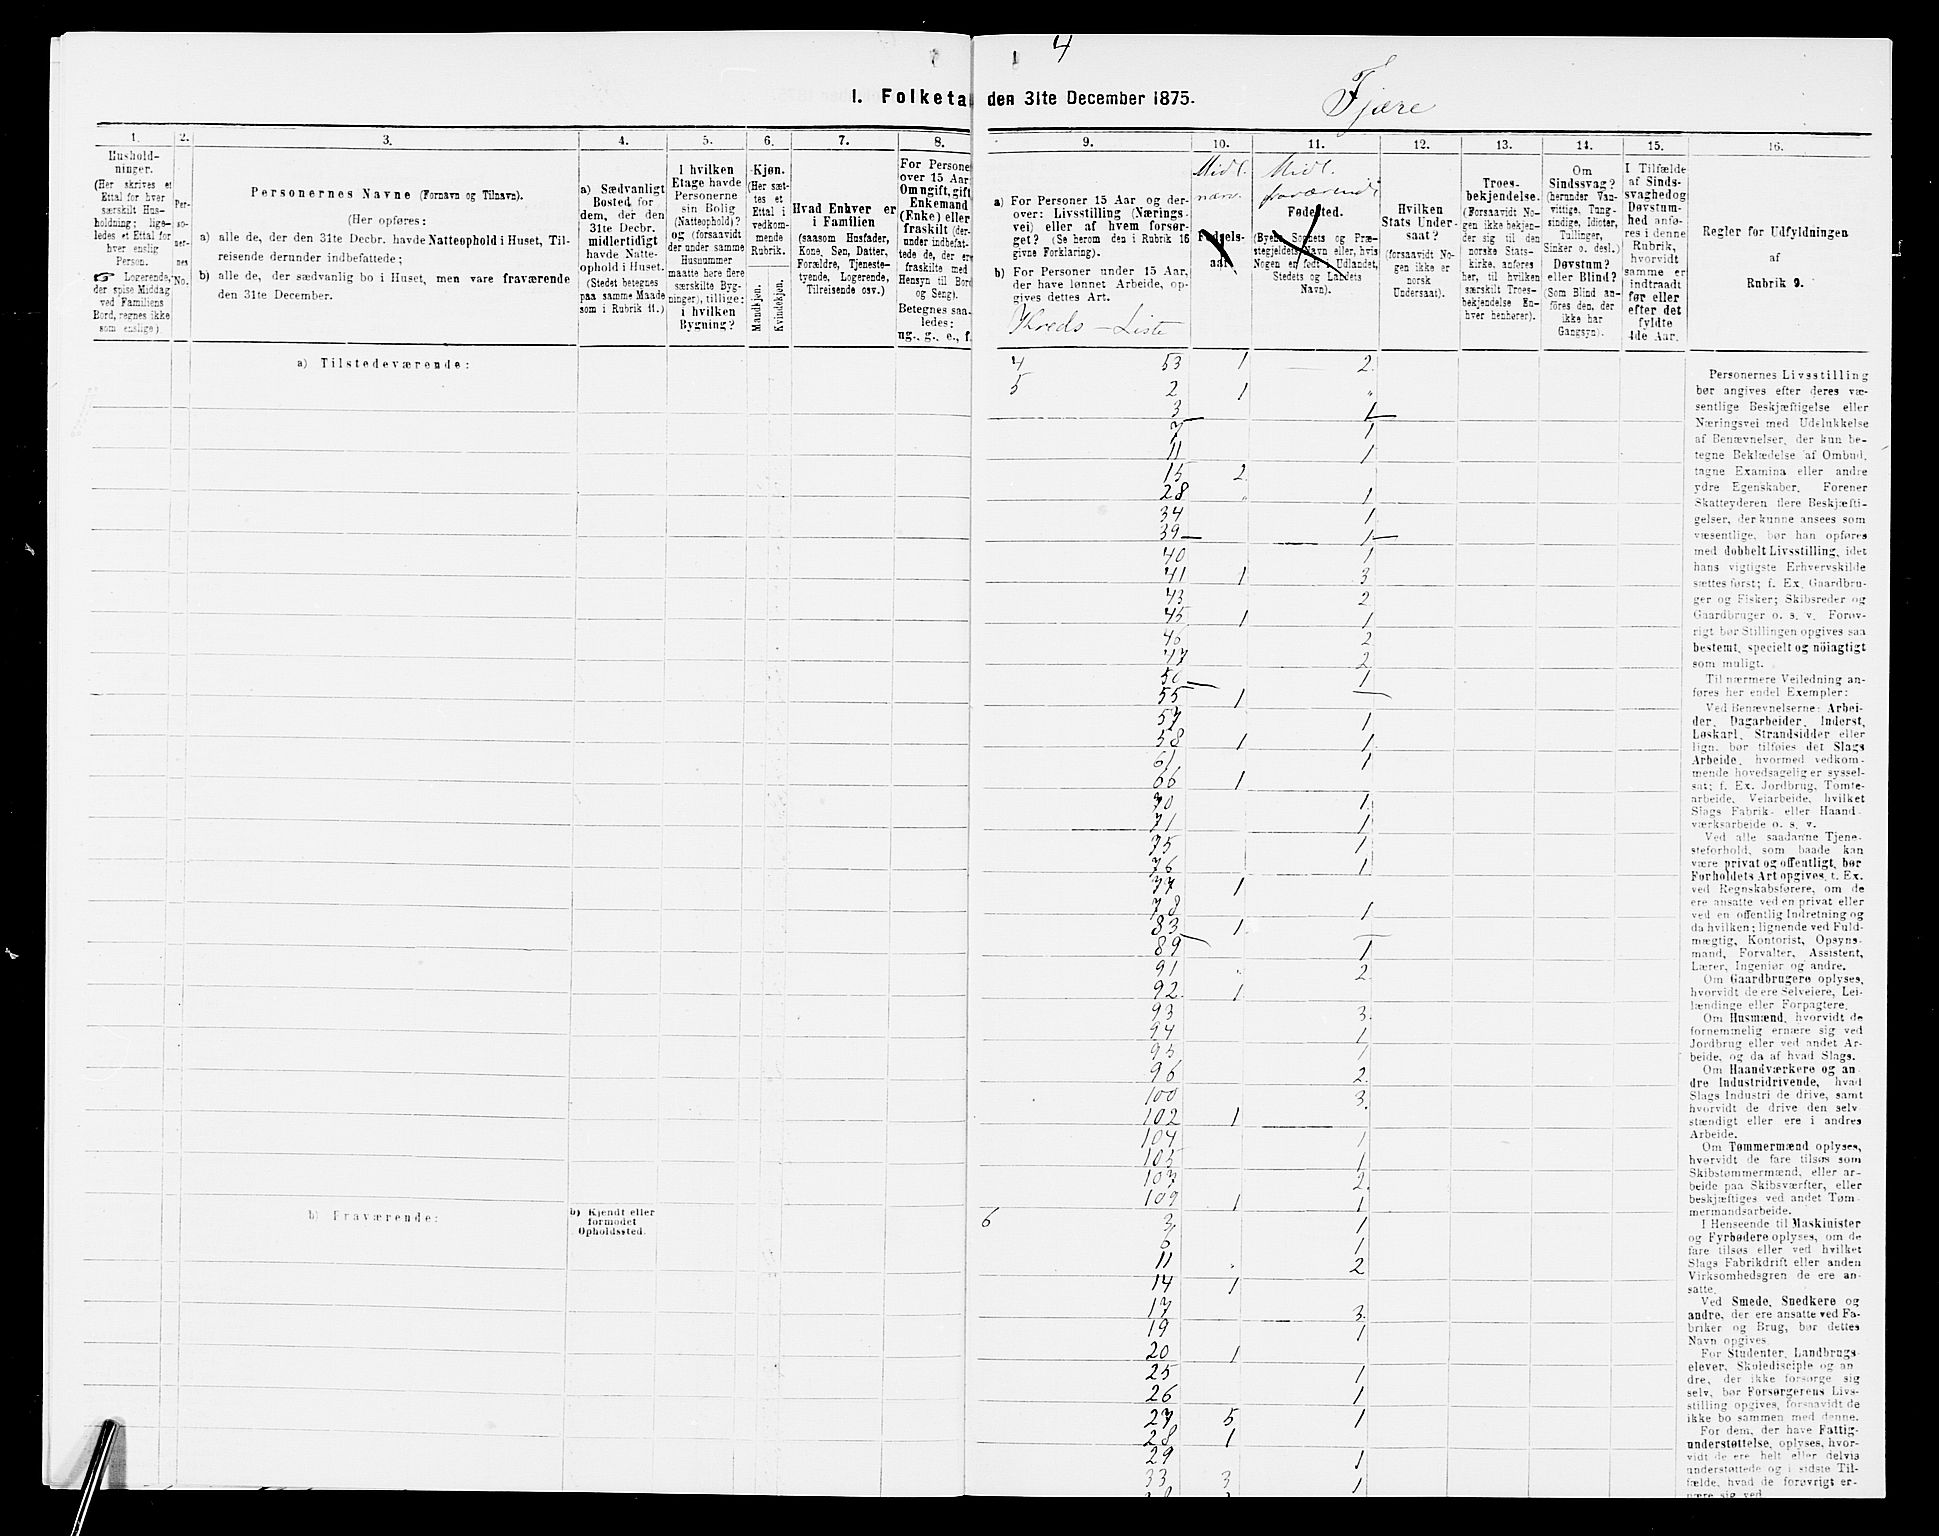 4
I. Folketa den 31te December 1875.
Fjære
1.
2.
3.
4.
5.
6.
7.
8.
9.
10.
11.
12.
13.
14.
15.
16.
Hushold-
ninger.
(Her skrives et
Ettal for hver
særskilt Hus-
holdning; lige-
ledes et Ettal for
hver enslig
Person.
☞ Logerende,
der spise Middag
ved Familiens
Bord, regnes ikke
som enslige).
Per-
so-
ner-
nes
No.
Personernes Navne (Fornavn og Tilnavn).
(Her opføres:
a) alle de, der den 31te Decbr. havde Natteophold i Huset, Til-
reisende derunder indbefattede;
b) alle de, der sædvanlig bo i Huset, men vare fraværende
den 31te December.
a) Sædvanligt
Bosted for
dem, der den
31te Decbr.
midlertidigt
havde Natte-
ophold i Huset.
(Stedet betegnes
paa samme Maade
som i Rubrik 11.)
I hvilken
Etage havde
Personerne
sin Bolig
(Natteophold)?
og (forsaavidt
der under samme
Husnummer
maatte høre flere
særskilte Byg-
ninger), tillige:
i hvilken
Bygning?
Kjøn.
(Her sæt-
tes et
Ettal i
vedkom-
mende
Rubrik.
Mandkjøn.
Kvindekjøn.
Hvad Enhver er
i Familien
(saasom Husfader,
Kone, Søn, Datter,
Forældre, Tjeneste-
tyende, Logerende,
Tilreisende osv.)
For Persone
over 15 Aar:
Om ugift, gift,
Enkemand
(Enke) eller
fraskilt (der-
under indbefat-
tede de, der er
fraskilte med
Hensyn til Bord
og Seng).
Betegnes saa-
ledes:
ug., g., e., f.
a) For Personer 15 Aar og der-
over: Livsstilling (Nærings-
vei) eller af hvem forsør-
get? (Se herom den i Rubrik 16
givne Forklaring).
b) For Personer under 15 Aar,
der have lønnet Arbeide, op-
gives dettes Art.
Kreds - Liste
Midl.
nærv.
Fødsels-
aar.
Midl.
fraværende
Fødested.
(Byens, Sognets og Præ-
stegjeldets Navn eller, hvis
Nogen er født i Udlandet,
Stedets og Landets
Navn).
Hvilken
Stats Under-
saat?
(forsaavidt No-
gen ikke er
norsk
Undersaat).
Troes-
bekjendelse.
(Forsaavidt No-
gen ikke bekjen-
der sig til den
norske Stats-
kirke, anføres
her, til hvilken
særskilt Troes-
bekjendelse En-
hver henhører).
Om
Sindssvag?
(herunder Van-
vittige, Tung-
sindige, Idioter,
Tullinger,
Sinker o. desl.)
Døvstum?
eller Blind?
(Som Blind an-
föres den, der
ikke har
Gangsyn).
I Tilfælde
af Sinds-
svaghed og
Døvstum-
hed anfø-
res i denne
Rubrik,
hvorvidt
samme er
indtraadt
før eller
efter det
fyldte
4de Aar.
Regler for Udfyldningen
af
Rubrik 9.
a) Tilstedeværende:
b) Fraværende:
b) Kjendt eller
formodet
Opholdssted.
4 53 1 2
5 2 1 "
3 1
7 1
11 1
15 2
28 " 1
34 1
39 1
40 1
41 1 3
43 2
45 1 1
46 2
47 2
50 1
55 1
57 1
58 1 1
61 1
66 1
70 1
71 1
75 1
76 1
77 1
78 1
83 1
89 1
91 " 2
92 1
93 3
94 1
95 1
96 2
100 3
102 1
104 1
105 1
107 2
109 1 1
6 3 1
6 1
11 " 2
14 1
17 3
19 1
20 1
25 1
26 1
27 5 1
28 1
29 1
33 3 1
Personernes Livsstilling
bør angives efter deres væ-
sentlige Beskjæftigelse eller
Næringsvei med Udelukkelse
af Benævnelser, der kun be-
tegne Beklædelse af Ombud,
tagne Examina eller andre
ydre Egenskaber. Forener
Skatteyderen flere Beskjæfti-
gelser, der kunne ansees som
væsentlige, bør han opføres
med dobbelt Livsstilling, idet
hans vigtigste Erhvervskilde
sættes først; f. Ex. Gaardbru-
ger og Fisker; Skibsreder og
Gaardbruger o. s. v. Forøv-
rigt bør Stillingen opgives saa
bestemt, specielt og nöiagtigt
som muligt.
Til nærmere Veiledning an-
føres her endel Exempler:
Ved Benævnelserne: Arbei-
der, Dagarbeider, Inderst,
Løskarl, Strandsidder eller
lign. bør tilføies det Slags
Arbeide, hvormed vedkom-
mende hovedsagelig er syssel-
sat; f. Ex. Jordbrug, Tomte-
arbeide, Veiarbeide, hvilket
Slags Fabrik- eller Haand-
værksarbeide o. s. v.
Ved alle saadanne Tjene-
steforhold, som baade kan
være privat og offentligt, bør
Forholdets Art opgives, f. Ex.
ved Regnskabsførere, om de
ere ansatte ved en privat eller
ved en offentlig Indretning og
da hvilken; lignende ved Fuld-
mægtig, Kontorist, Opsyns-
mand, Forvalter, Assistent,
Lærer, Ingeniør og andre.
Om Gaardbrugere oplyses,
hvorvidt de ere Selveiere, Lei-
lændinge eller Forpagtere.
Om Husmænd, hvorvidt de
fornemmelig ernære sig ved
Jordbrug eller ved andet Ar-
beide, og da af hvad Slags.
Om Haandværkere og an-
dre Industridrivende, hvad
Slags Industri de drive, samt
hvorvidt de drive den selv-
stændigt eller ere i andres
Arbeide.
Om Tømmermænd oplyses,
hvorvidt de fare tilsøs som
Skibstømmermænd, eller ar-
beide paa Skibsværfter, eller
beskjæftiges ved andet Tøm-
mermandsarbeide.
I Henseende til Maskinister
og Fyrbødere oplyses, om de
fare tilsøs eller ved hvilket
Slags Fabrikdrift eller anden
Virksomhedsgren de ere an-
satte.
Ved Smede, Snedkere og
andre, der ere ansatte ved Fa-
briker og Brug, bør dettes
Navn opgives.
For Studenter, Landbrugs-
elever, Skoledisciple og an-
dre, der ikke forsørge sig
selv, bør Forsørgerens Livs-
stilling opgives, forsaavidt de
ikke bo sammen med denne.
For dem, der have Fattig-
understøttelse, oplyses, hvor-
vidt de ere helt eller delvis
understøttede og i sidste Til-
fælde, hvad de forøvrigt er-
nære sig ved.